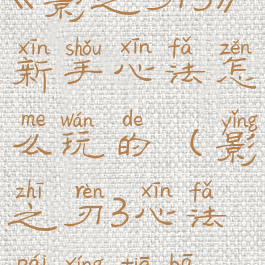 《影之刃3》
xīn shǒu xīn fǎ zěn
新手心法怎
me wán de yǐng
么玩的(影
zhī rèn xīn fǎ
之刃3心法
pái xíng tiē bā